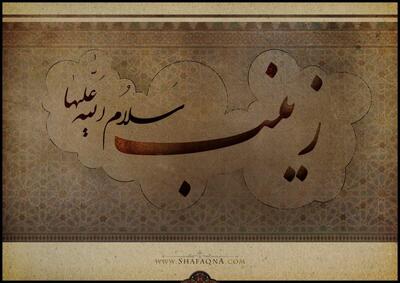 زینب
سلام الله علیها
www.ShafaqnA.com